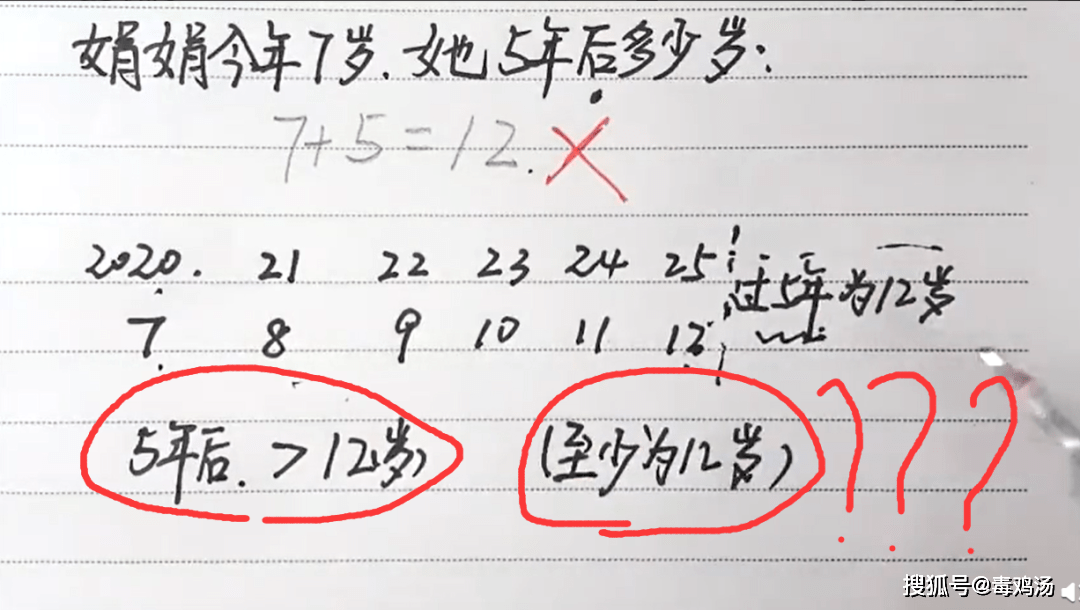 娟娟今年7岁.她5年后多少岁:
7+5=12.
2020. 21 22 23 24 25 过5年为12岁
7 8 9 10 11 12
5年后.>12(岁) (至少为12岁) ???
搜狐号@毒鸡汤